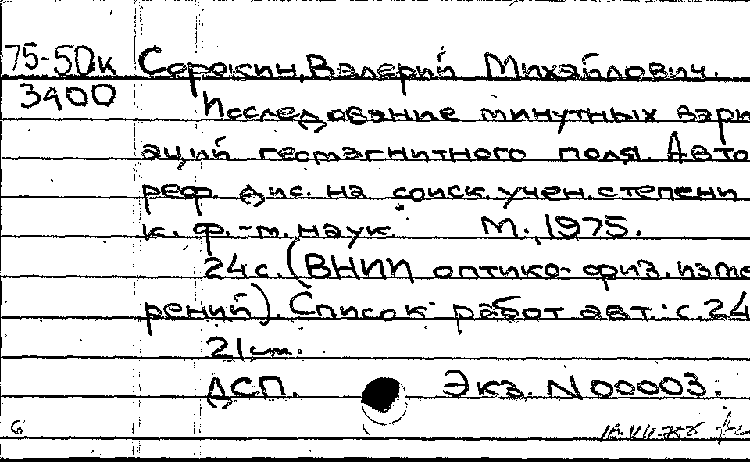 75-50к Сорокин, Валерий Михайлович.
3400 Исследование минутных вари
аций геомагнитного поля. Авто
реф. дис. на соиск. учен. степени
к. ф.-м. наук. М., 1975.
24 с. (ВНИИ оптико-физ. изме
рений). Список работ авт.: с. 24
21 см.
ДСП. Экз. N 00003.
6